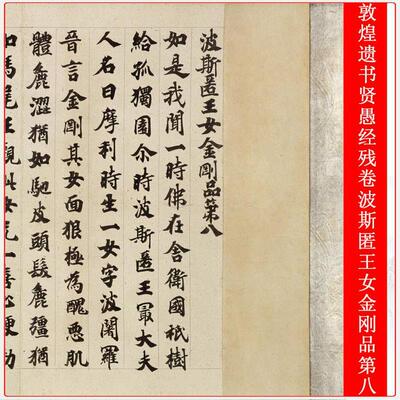 敦煌遗书贤愚经残卷波斯匿王女金刚品第八
波斯匿王女金剛品第八
如是我聞一時佛在舍衛國祇樹
給孤獨園尒時波斯匿王冣大夫
人名曰摩利時生一女字波闍羅
晉言金剛其女面狠極為醜惡肌
體麁澀猶如馳皮頭髮麁彊猶
如馬尾王觀此女无一喜心便勑